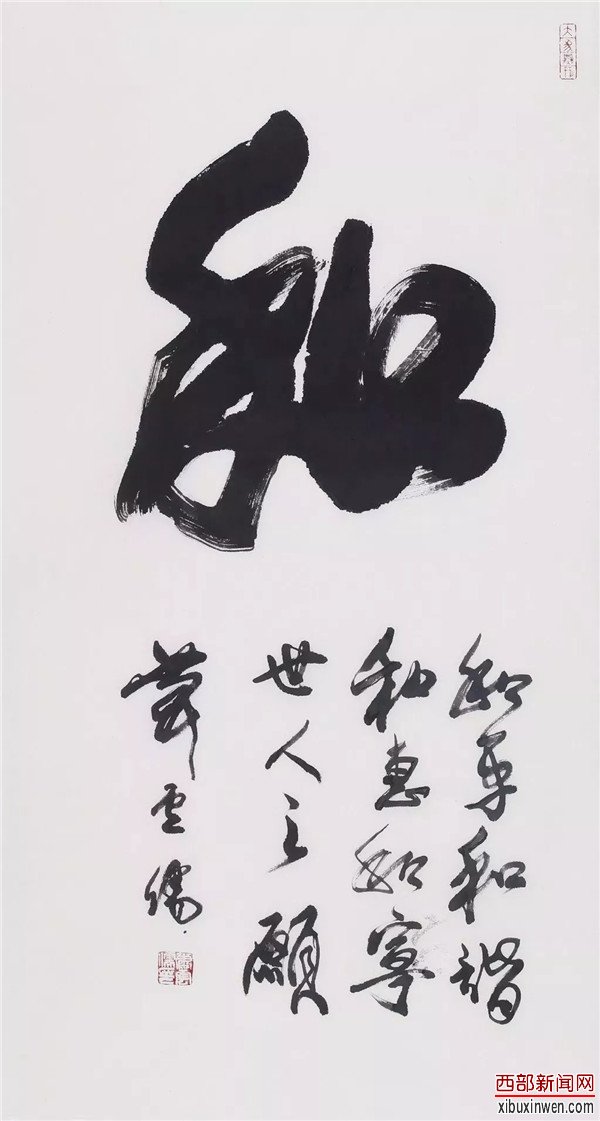 和
和平和諧
和惠和寧
世人之願
西部新闻网
xibuxinwen.com